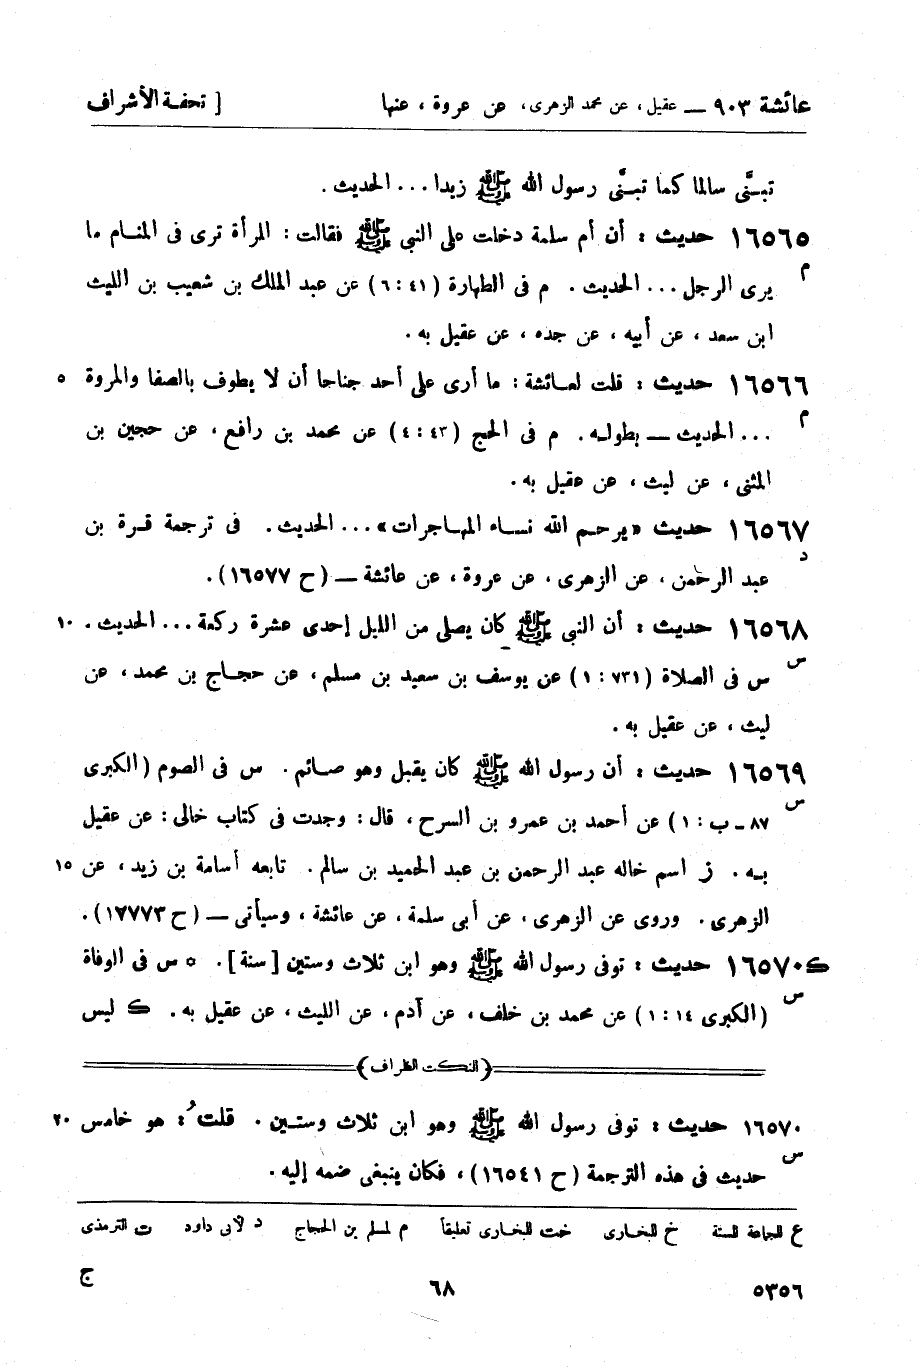 عائشة ٩٠٣ ــ عقيل ، عن محمد الزهرى ، عن عروة ، عنها [ تحفة الأشراف
تبنَّى سالما كما تبنَّى رسول الله ﷺ زيدا ... الحديث .
١٦٥٦٥ حديث : أن أم سلمة دخلت على النبي ﷺ فقالت : المرأة ترى فى المنام ما
م يرى الرجل ... الحديث . م فى الطهارة (٤١ : ٦) عن عبد الملك بن شعيب بن الليث
ابن سعد ، عن أبيه ، عن جده ، عن عقيل به .
١٦٥٦٦ حديث : قلت لعائشة : ما أرى على أحد جناحا أن لا يطوف بالصفا والمروة ٥
م ... الحديث ــ بطوله . م فى الحج (٤٣ : ٤) عن محمد بن رافع ، عن حجين بن
المثنى ، عن ليث ، عن عقيل به .
١٦٥٦٧ حديث «يرحم الله نساء المهاجرات» ... الحديث . فى ترجمة قرة بن
د عبد الرحمن ، عن الزهرى ، عن عروة ، عن عائشة ــ (ح ١٦٥٧٧) .
١٦٥٦٨ حديث : أن النبي ﷺ كان يصلى من الليل إحدى عشرة ركعة ... الحديث . ١٠
س س فى الصلاة (٧٣١ : ١) عن يوسف بن سعيد بن مسلم ، عن حجاج بن محمد ، عن
ليث ، عن عقيل به .
١٦٥٦٩ حديث : أن رسول الله ﷺ كان يقبل وهو صائم . س فى الصوم (الكبرى
س ٨٧ ـ ب : ١) عن أحمد بن عمرو بن السرح ، قال : وجدت فى كتاب خالى : عن عقيل
به . ز اسم خاله عبد الرحمن بن عبد الحميد بن سالم . تابعه أسامة بن زيد ، عن ١٥
الزهرى . وروى عن الزهرى ، عن أبى سلمة ، عن عائشة ، وسيأتى ــ (ح ١٧٧٧٣) .
ك ١٦٥٧٠ حديث : توفى رسول الله ﷺ وهو ابن ثلاث وستين [سنة] . ٥ س فى الوفاة
س (الكبرى ١٤ : ١) عن محمد بن خلف ، عن آدم ، عن الليث ، عن عقيل به . ك ليس
(النكت الظراف)
١٦٥٧٠ حديث : توفى رسول الله ﷺ وهو ابن ثلاث وستين . قلتُ : هو خامس ٢٠
س حديث فى هذه الترجمة (ح ١٦٥٤١) ، فكان ينبغى ضمه إليه .
ع للجماعة الستة خ للبخارى خت للبخارى تعليقاً م لمسلم بن الحجاج د لأبى داود ت للترمذى
٥٣٥٦ ٦٨ ج